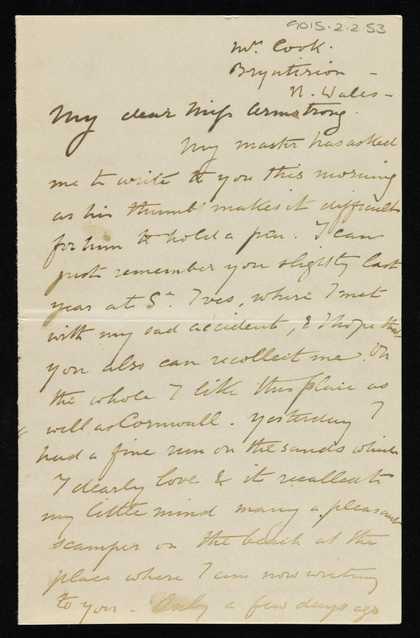 9015-2-2-53
Mr. Cook.
Bryntirion -
N. Wales -
My dear Miss Armstrong.
My master has asked
me to write to you this morning
as his thumb makes it difficult
for him to hold a pen. I can
just remember you slightly last
year at St. Ives, where I met
with my sad accident, & I hope that
you also can recollect me. On
the whole I like this place as
well as Cornwall. Yesterday I
had a fine run on the sands which
I dearly love & it recalled to
my little mind many a pleasant
scamper on the beach at the
place where I am now writing
to you - Only a few days ago